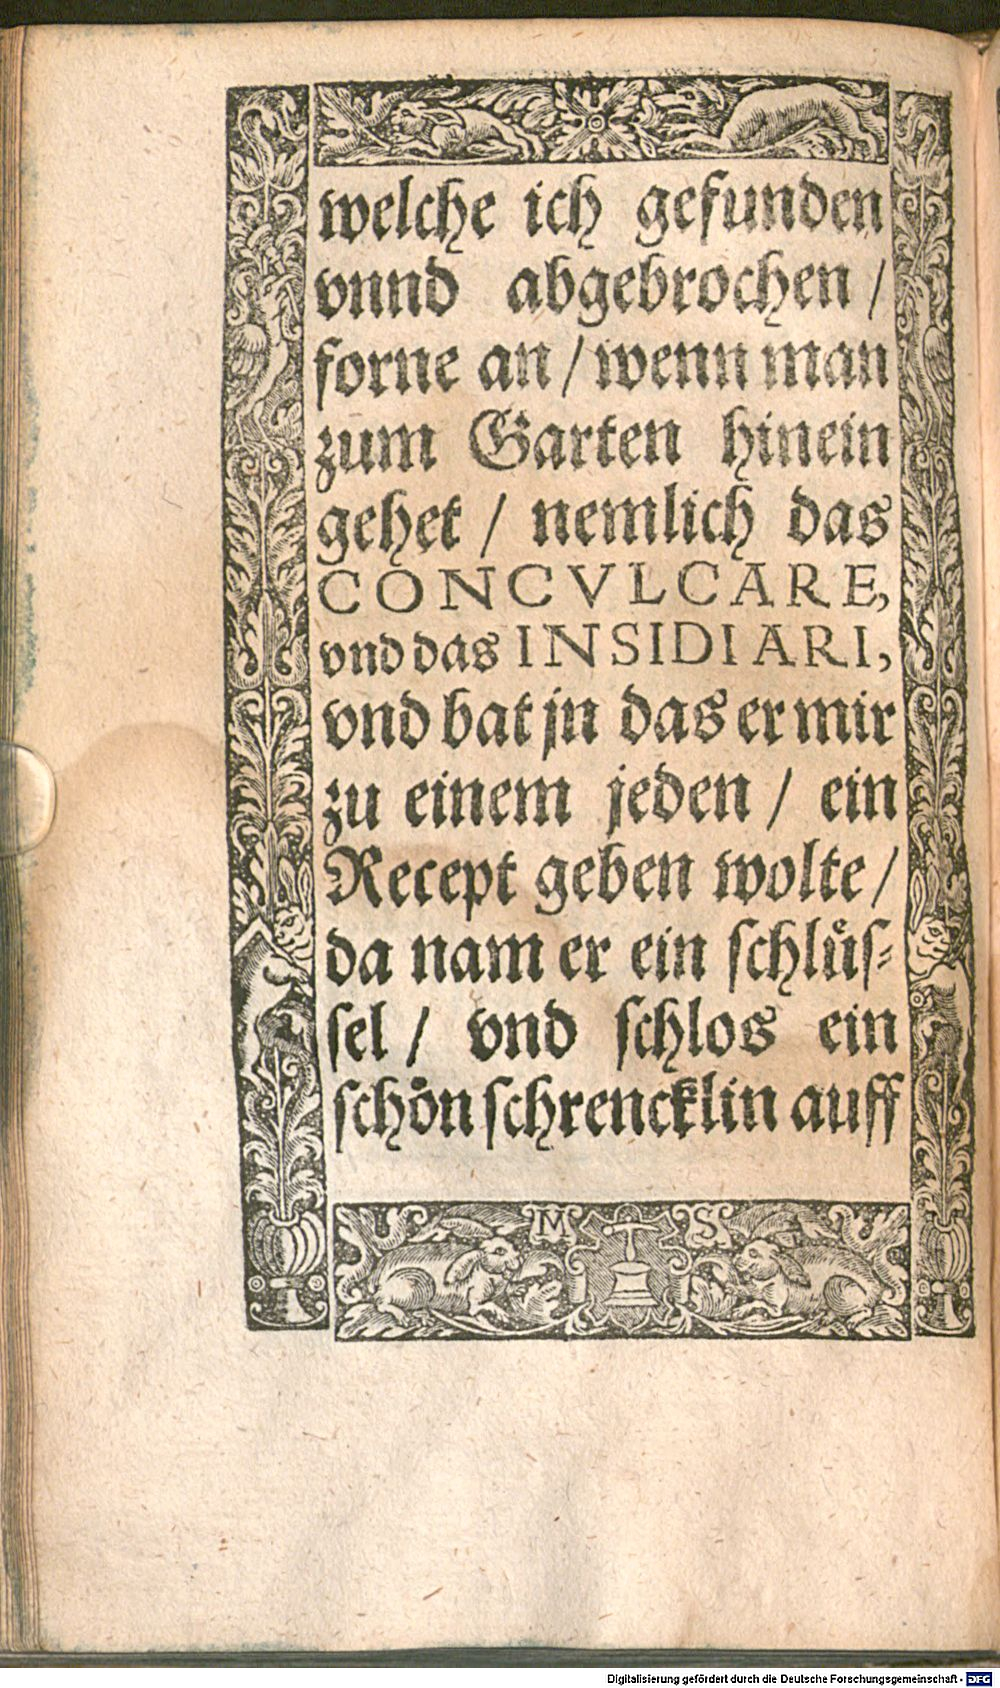 welche ich gefunden
vnnd abgebrochen /
forne an / wenn man
zum Garten hinein
gehet / nemlich das
CONCVLCARE,
vnd das INSIDIARI,
vnd bat jn das er mir
zu einem jeden / ein
Recept geben wolte /
da nam er ein schlüs⸗
sel / vnd schlos ein
schön schrencklin auff
M S
Digitalisierung gefördert durch die Deutsche Forschungsgemeinschaft - DFG